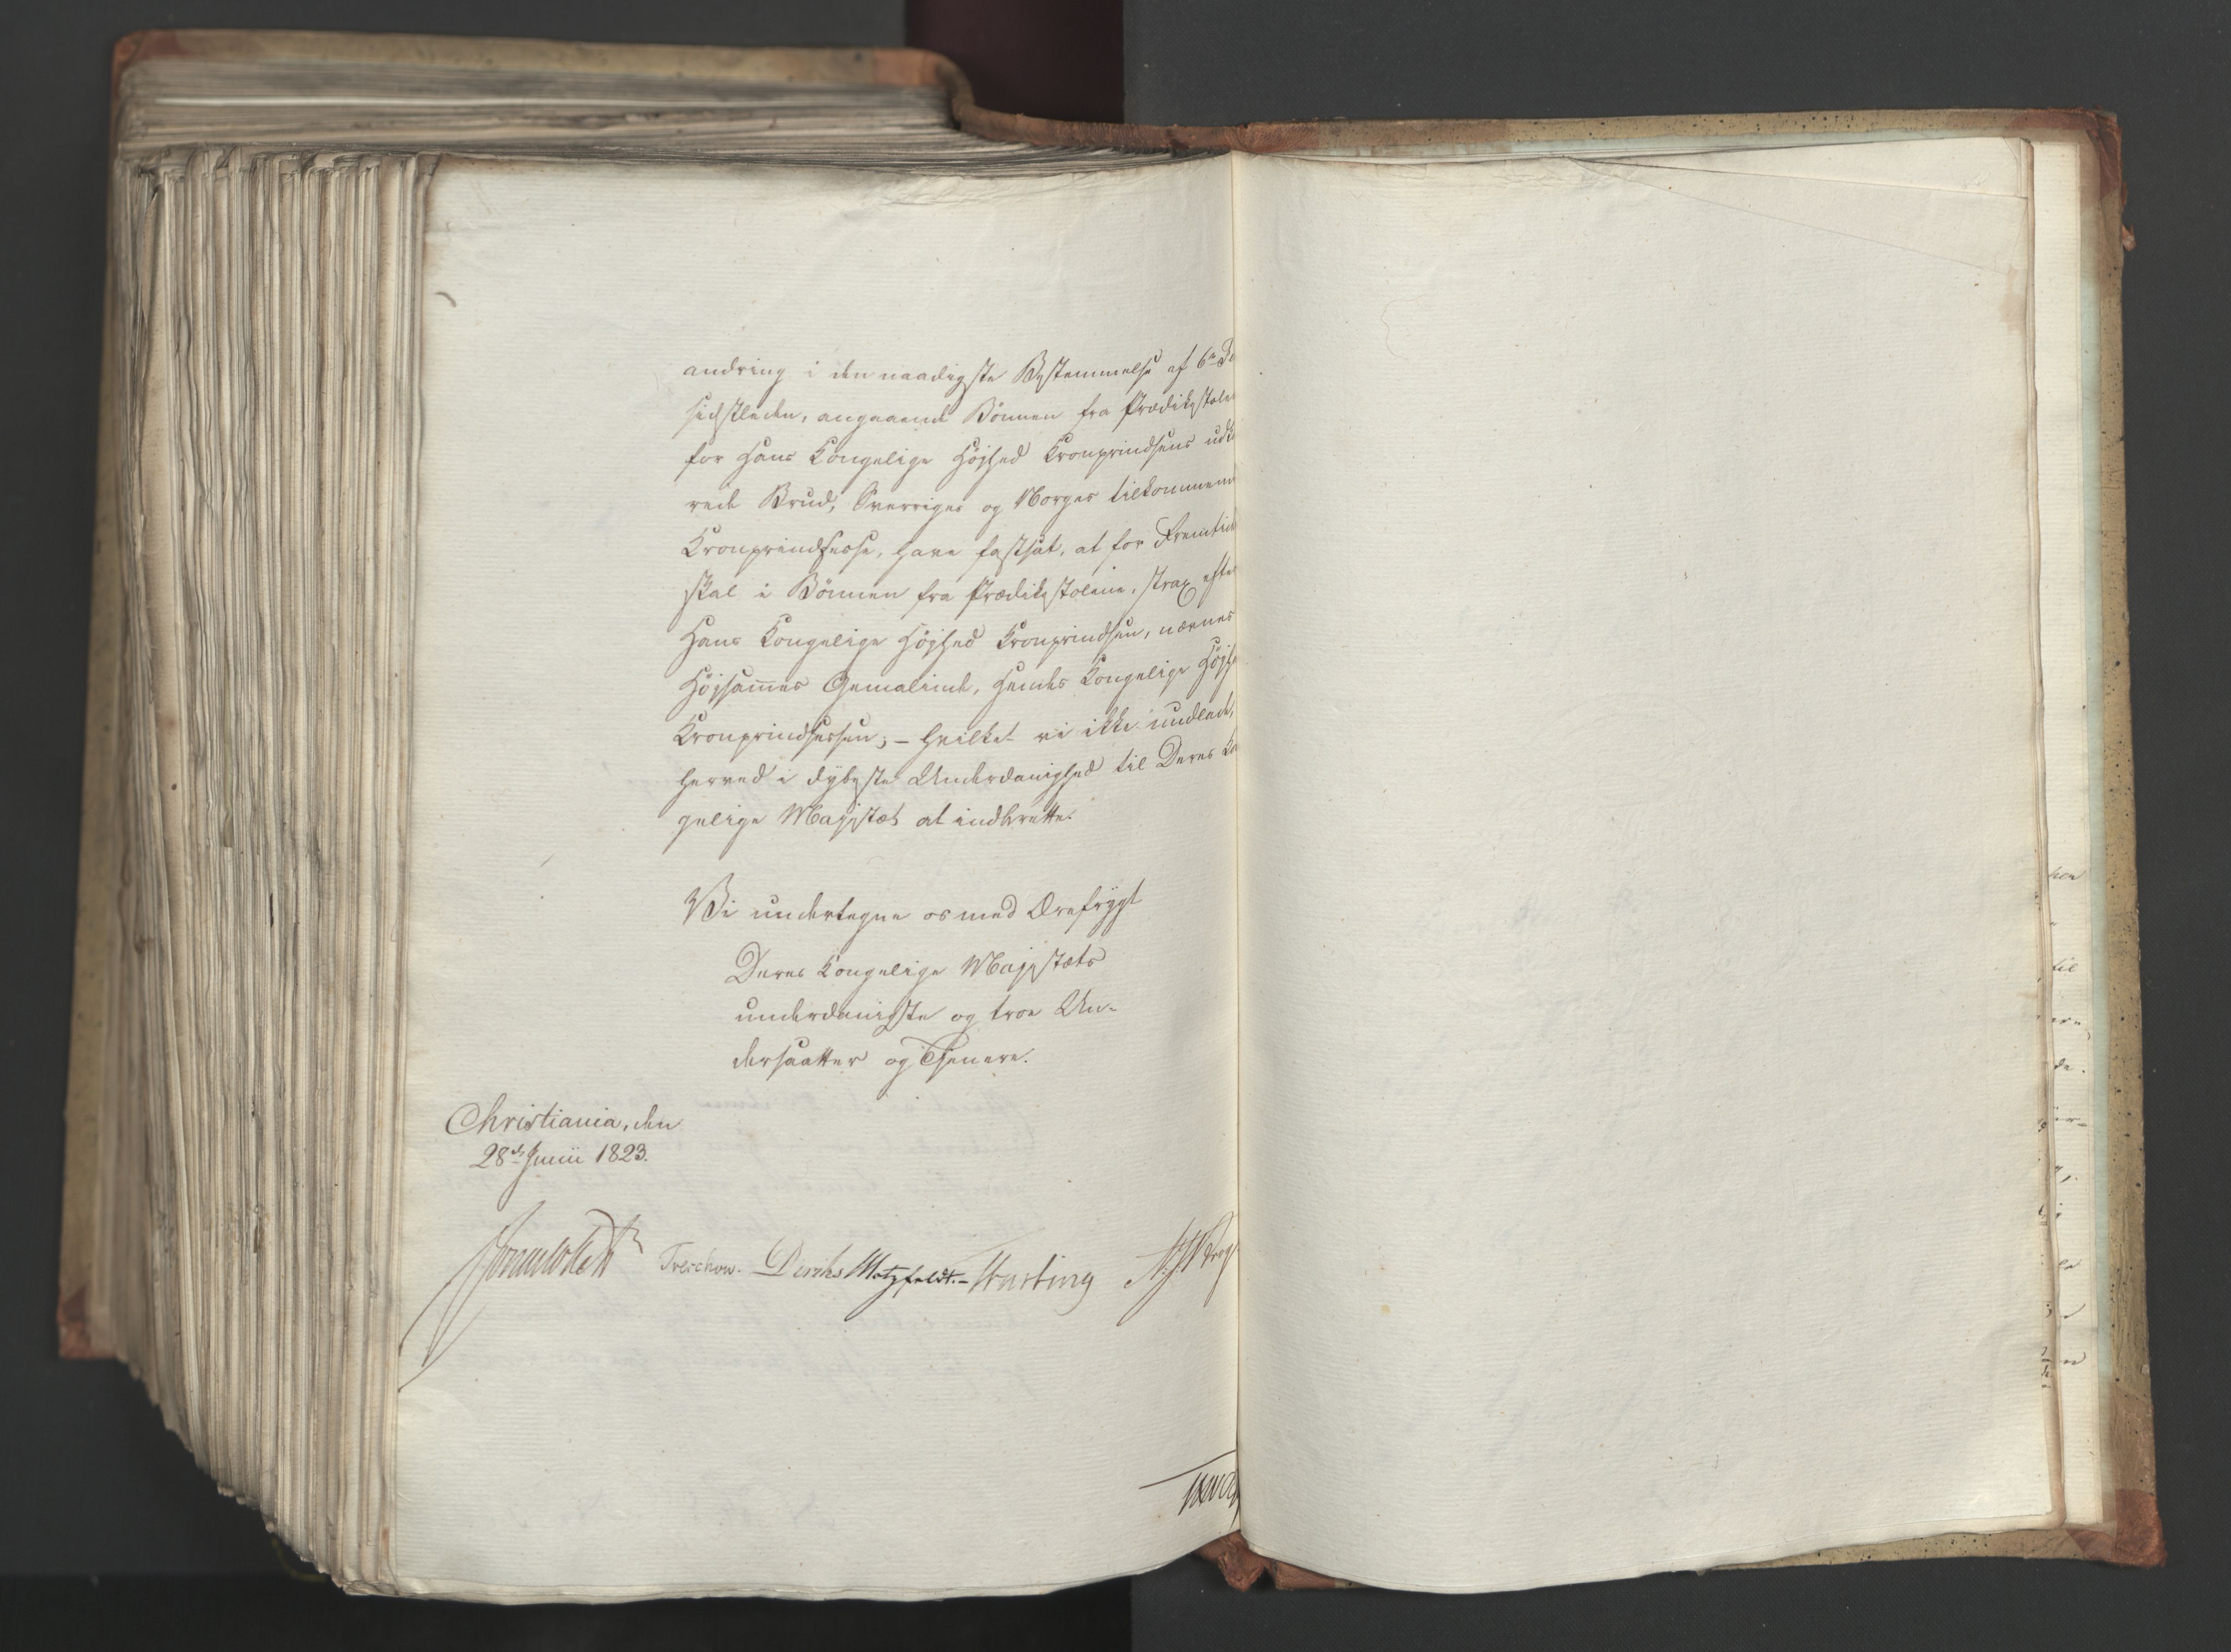 andring i den naadigste Bestemmelse af 6te
sidstleden, angaaende Bønnen fra Prædikestolen
for Hans Kongelige Højhed Kronprindsens udkaa
rede Brud, Sverriges og Norges tilkommende
Kronprindsesse, have fastsat, at for Fremtiden
skal i Bønnen fra Prædikestolene, strax efter
Hans Kongelige Højhed Kronprindsen, nævnes
Højsammes Gemalinde, Hendes Kongelige Højhed
Kronprindsessen; - hvilket vi ikke undlade,
herved i dybeste Underdanighed til Deres Kon
gelige Majestæt at indberette.
Vi undertegne os med Ærefrygt
Deres Kongelige Majestæts
underdanigste og troe Un-
dersaatter og Tjenere.
Christiania, den
28de Junii 1823.
Treschow. Diriks Motzfeldt. -
til